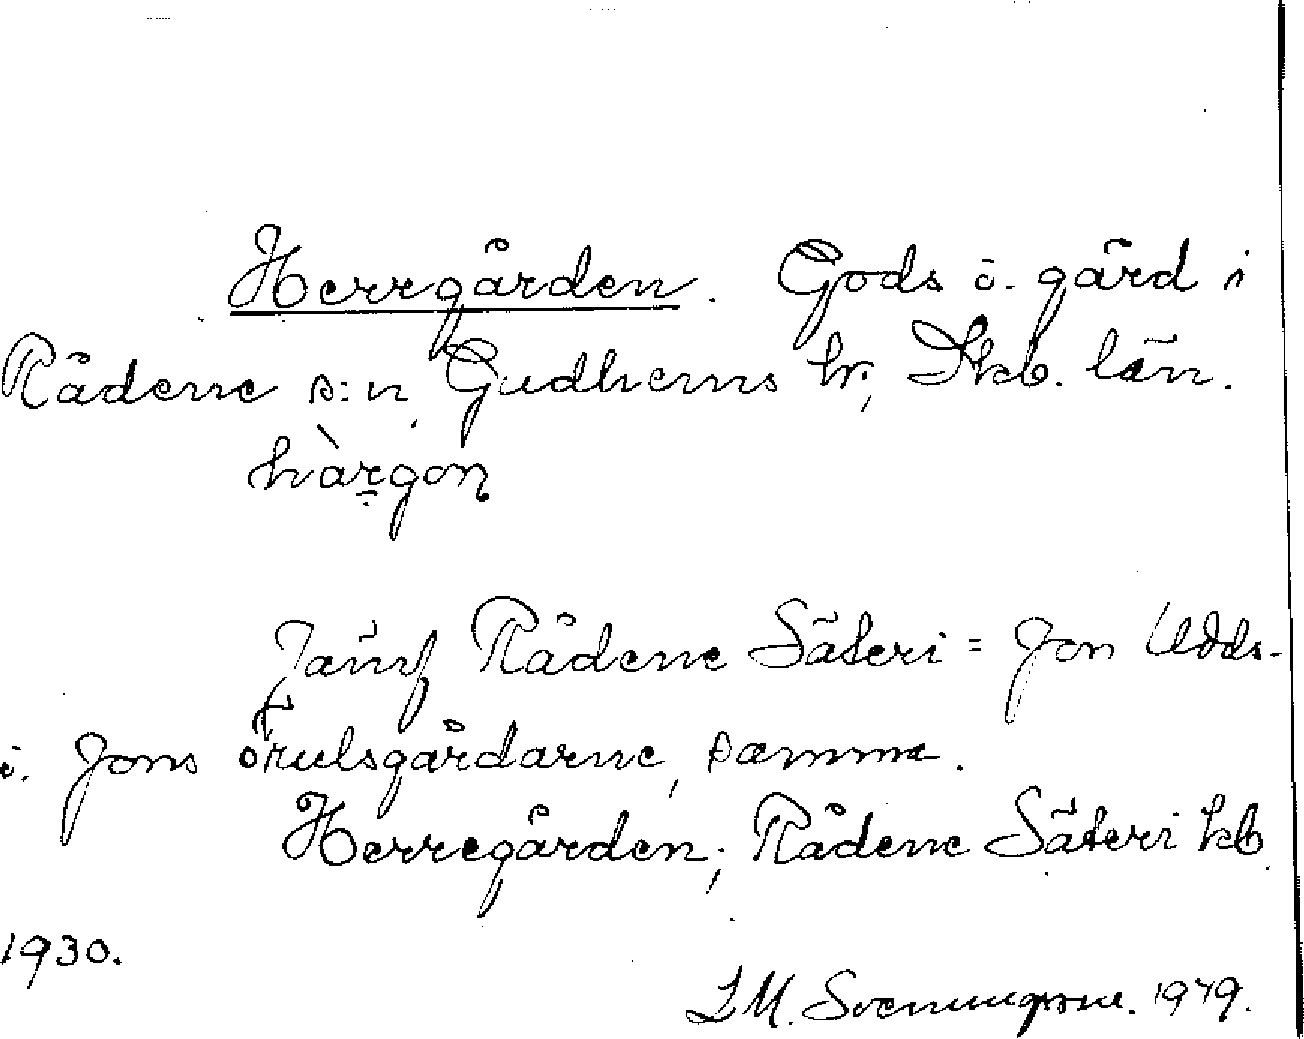 Herrgården. Gods o. gård i
Rådene s:n, Gudhems hr, Skb. län.
hàrgon
Jämf Rådene Säteri = Jon Udds-
o. Jons Örulsgårdarne, samma.
Herregården; Rådene Säteri kb
1930.